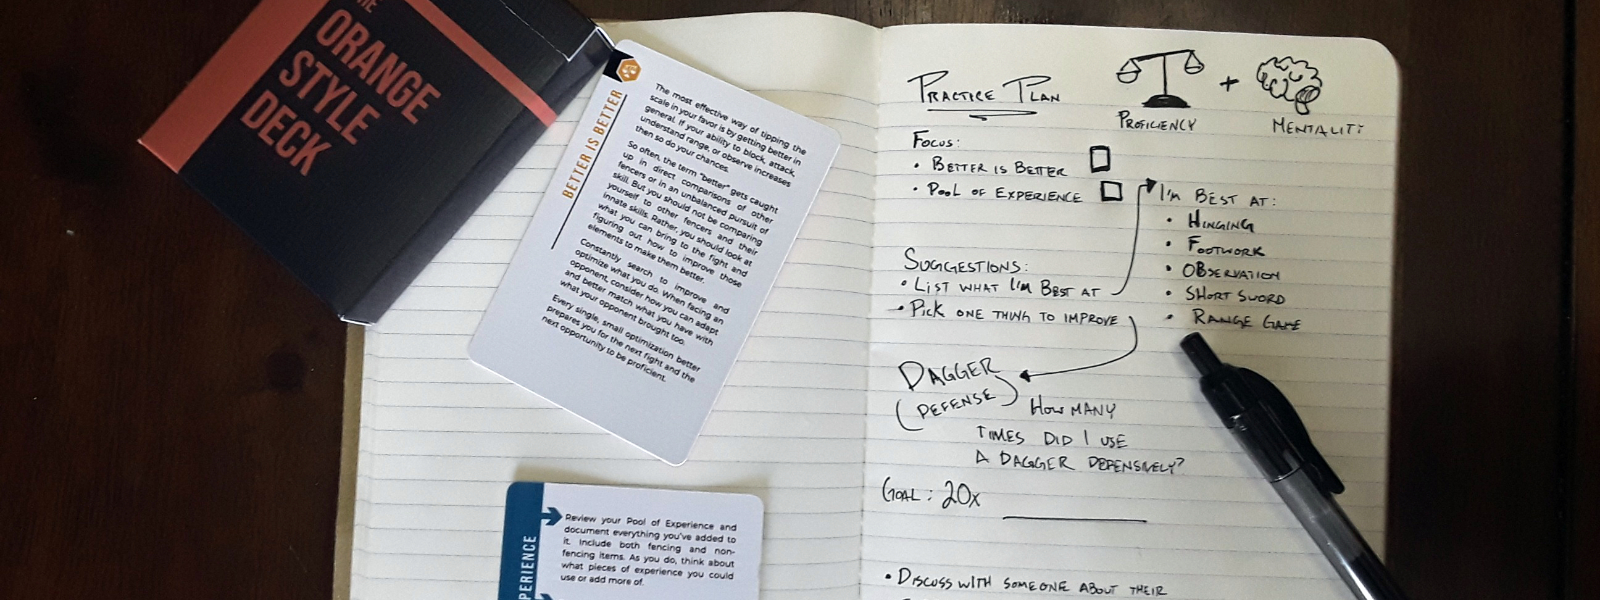 THE
ORANGE
STYLE
DECK
BETTER IS BETTER
The most effective way of tipping the
scale in your favor is by getting better in
general. If your ability to block, attack,
understand range, or observe increases
then so do your chances.
So often, the term "better" gets caught
up in direct comparisons of other
fencers or in an unbalanced pursuit of
skill. But you should not be comparing
yourself to other fencers and their
innate skills. Rather, you should look at
what you can bring to the fight and
figuring out how to improve those
elements to make them better.
Constantly search to improve and
optimize what you do. When facing an
opponent, consider how you can adapt
and better match what you have with
what your opponent brought too.
Every single, small optimization better
prepares you for the next fight and the
next opportunity to be proficient.
PERIENCE
Review your Pool of Experience and
document everything you've added to
it. Include both fencing and non-
fencing items. As you do, think about
what pieces of experience you could
use or add more of.
PRACTICE PLAN
PROFICIENCY
+
MENTALITY
FOCUS:
• BETTER IS BETTER
• POOL OF EXPERIENCE
SUGGESTIONS:
• LIST WHAT I'M BEST AT
• PICK ONE THING TO IMPROVE
I'M BEST AT:
• HINGING
• FOOTWORK
• OBSERVATION
• SHORT SWORD
• RANGE GAME
DAGGER
(DEFENSE)
HOW MANY
TIMES DID I USE
A DAGGER DEFENSIVELY?
GOAL: 20x
• DISCUSS WITH SOMEONE ABOUT THEIR